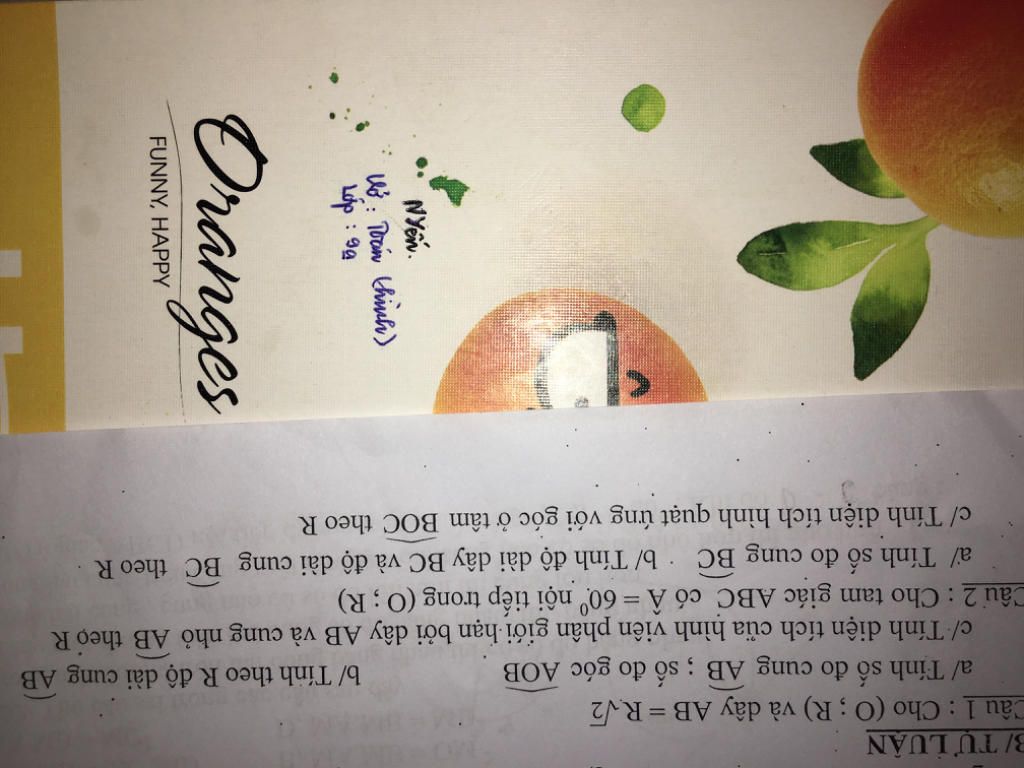 B/ TỰ LUẬN
Câu 1 : Cho (O ; R) và dây AB = R.√2
a/ Tính số đo cung AB ; số đo góc AOB b/ Tính theo R độ dài cung AB
c/ Tính diện tích của hình viên phân giới hạn bởi dây AB và cung nhỏ AB theo R
Câu 2 : Cho tam giác ABC có Â = 60⁰ nội tiếp trong (O ; R)
a/ Tính số đo cung BC b/ Tính độ dài dây BC và độ dài cung BC theo R
c/ Tính diện tích hình quạt ứng với góc ở tâm BOC theo R
Oranges
FUNNY, HAPPY
NYến.
Vở : Toán (hình)
Lớp : 9a